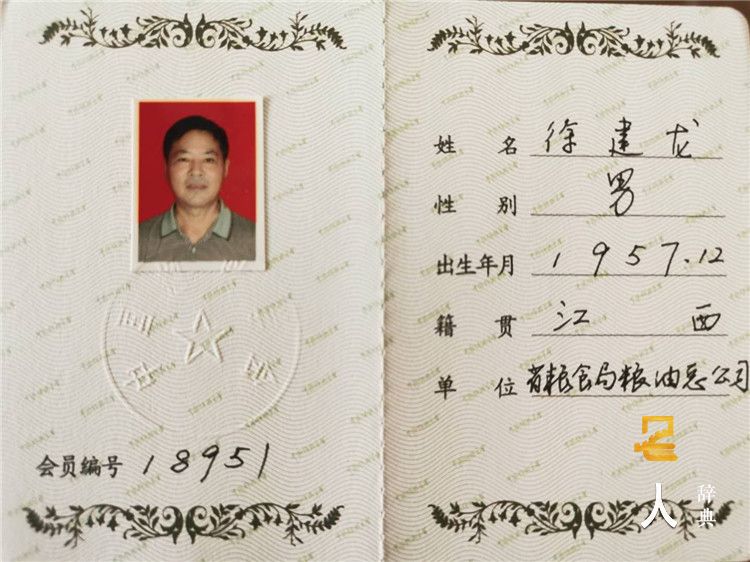 会员编号 18951
姓名 徐建龙
性别 男
出生年月 1957.12
籍贯 江西
单位 省粮食局粮油总公司
名人辞典